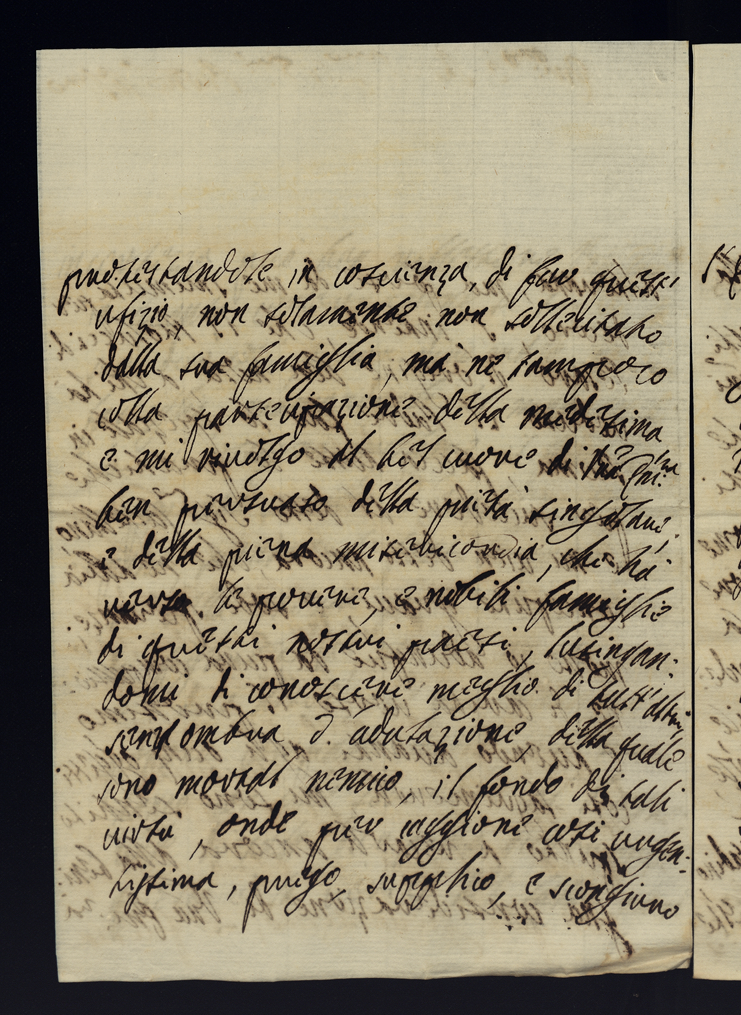 protestandole in coscienza, di fare questi
ufizio, non solamente non sollecitato
dalla sua famiglia, ma ne tampoco
colla partecipazione della medesima
e mi rivolgo al bel cuore di
ben persuaso della pietà singolare,
e della piena misericordia, che hà
verso le povere, e nobili famiglie
di questi nostri paesi, lusingan-
domi di conoscere meglio di tutt'altri
senz'ombra d'adulazione, della quale
sono mortal nemico, il fondo di tali
virtù, onde per caggione così urgen-
tissima, prego, supplico, e scongiuro